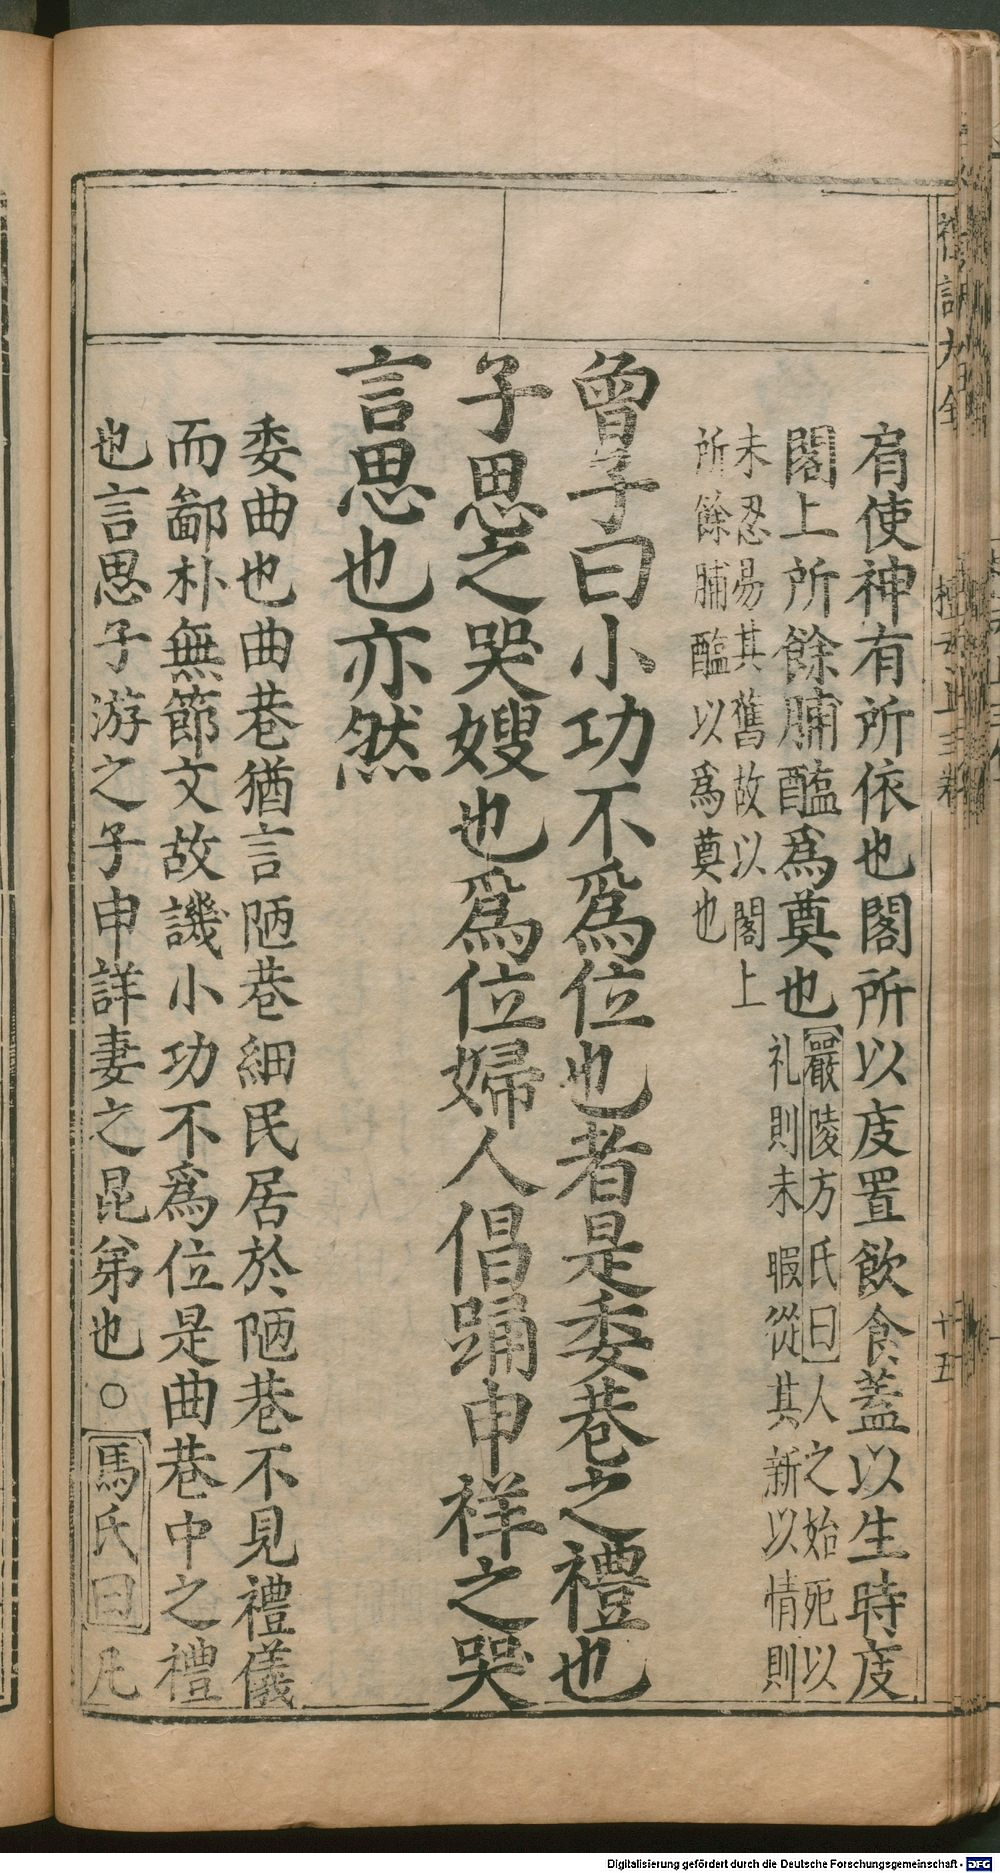 肩使神有所依也閣所以庋置飲食蓋以生時庋
閣上所餘脯醢爲奠也
嚴陵方氏曰人之始死以
礼則未暇從其新以情則
未忍易其舊故以閣上
所餘脯醢以爲奠也
曾子曰小功不爲位也者是委巷之禮也
子思之哭嫂也爲位婦人倡踊申祥之哭
言思也亦然
委曲也曲巷猶言陋巷細民居於陋巷不見禮儀
而鄙朴無節文故譏小功不爲位是曲巷中之禮
也言思子游之子申詳妻之昆弟也○馬氏曰凡
十五
Digitalisierung gefördert durch die Deutsche Forschungsgemeinschaft - DFG